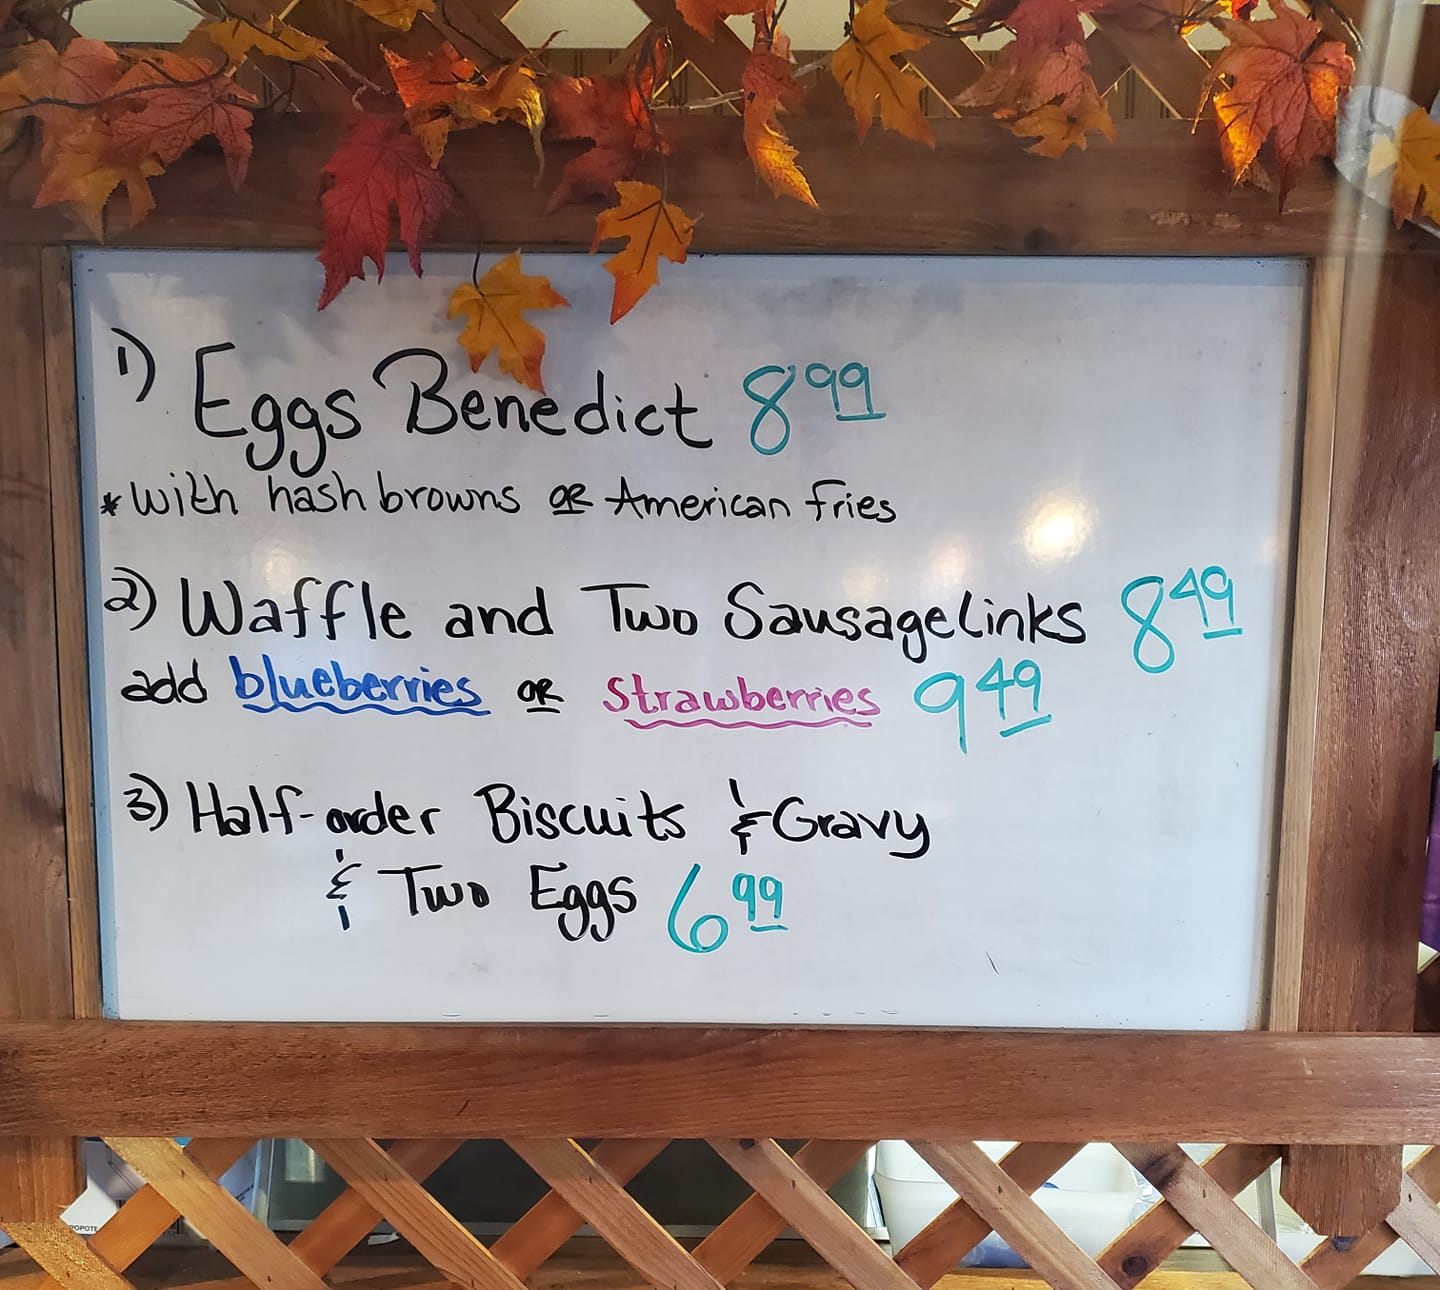 1) Eggs Benedict 8 99
* with hash browns OR American fries
2) Waffle and Two Sausage Links 8 49
add blueberries OR Strawberries 9 49
3) Half-order Biscuits & Gravy
& Two Eggs 6 99
POPOTE